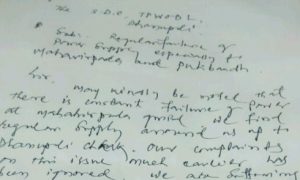 The S.D.O. TPWODL.
Dhanupali
Sub:- Regular failure of
Power Supply especially to
Mahavirpada and Putibandh
Sir,
May kindly be noted that
there is constant failure of power
at Mahavirpada grid we find
regular supply around us up to
Dhanupali chowk. Our complaints
on this issue much earlier was
been ignored we are suffering